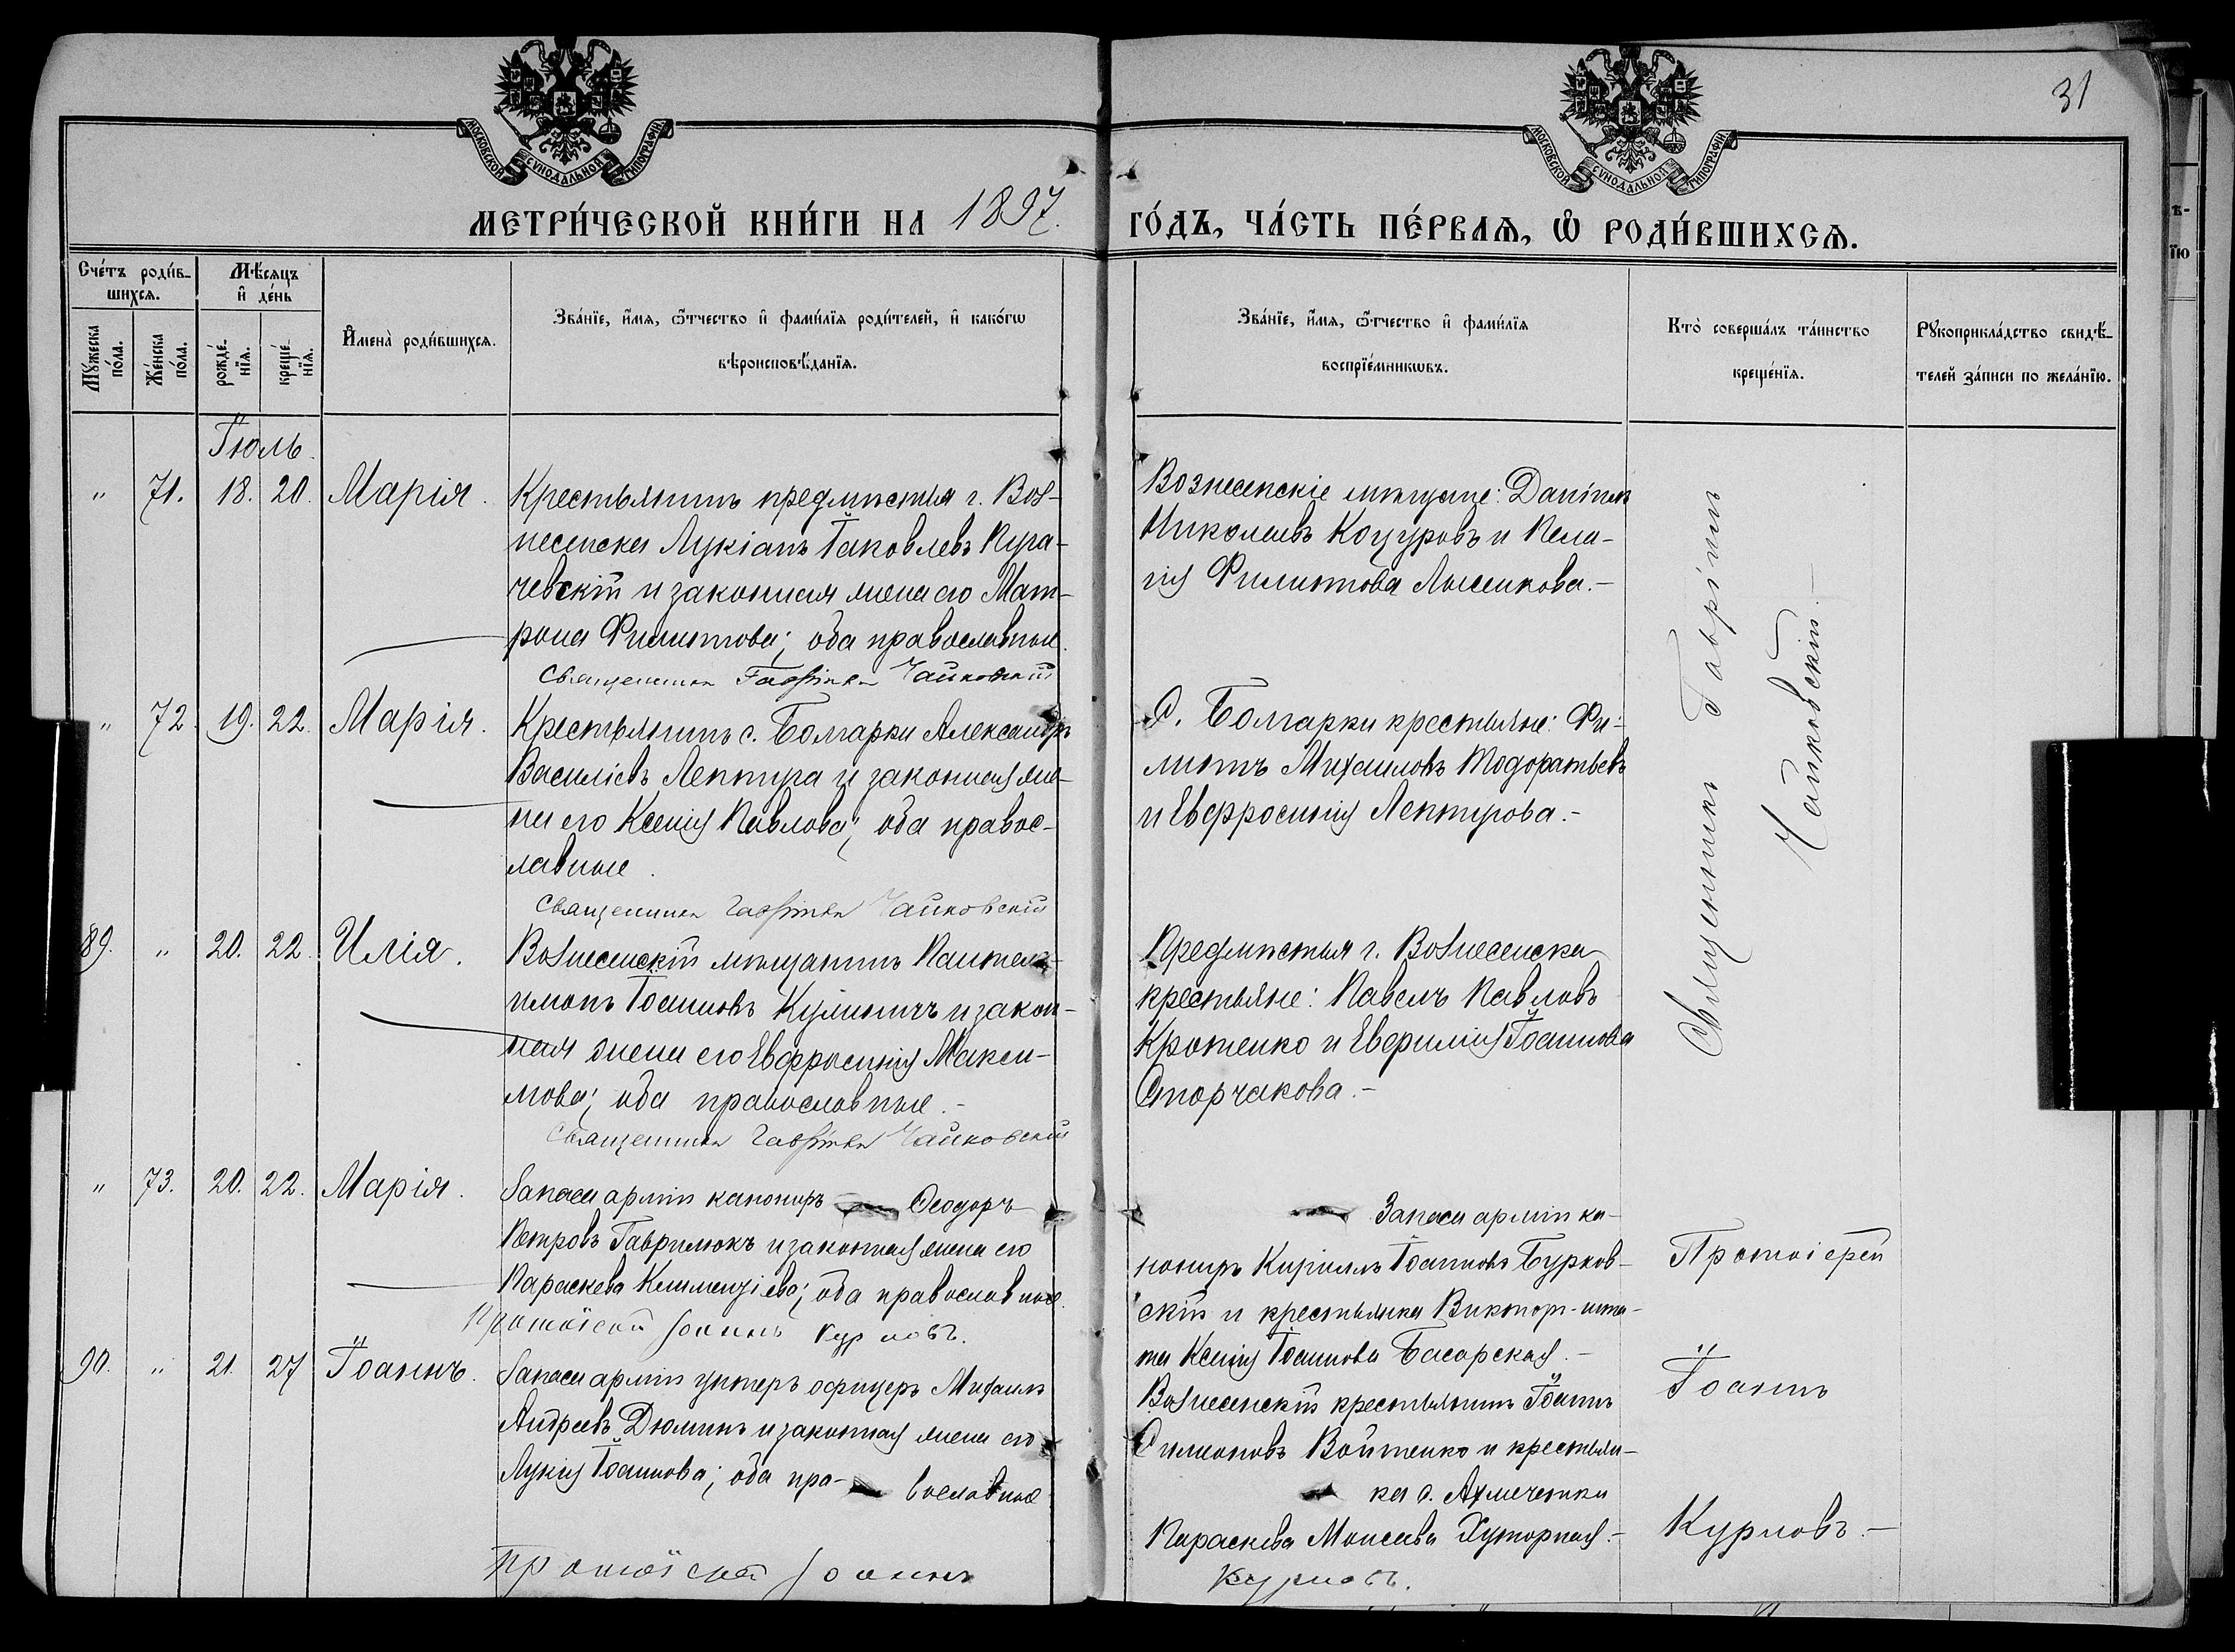 31
МОСКОВСКОЙ СУНОДАЛЬНОЙ ТИПОГРАФІИ
МОСКОВСКОЙ СУНОДАЛЬНОЙ ТИПОГРАФІИ
МЕТРИ́ЧЕСКОЙ КНИ́ГИ НА 1897. ГО́ДЪ, ЧА́СТЬ ПЕ́РВАЯ, Ѡ҆ РОДИ́ВШИХСЯ.
Сче́тъ роди́в-
шихся.
Мꙋ́жеска по́ла.
Же́нска по́ла.
Мѣ́сяцъ
и҆ де́нь
рожде́-
нїѧ.
креще́-
нїѧ.
И҆мена̀ роди́вшихсѧ.
Зва́нїе, и҆́мѧ, ѻ҆́тчество и҆ фами́лїѧ роди́телей, и҆ како́гѡ
вѣроисповѣ́данїѧ.
Зва́нїе, и҆́мѧ, ѻ҆́тчество и҆ фами́лїѧ
воспрїе́мникѡвъ.
Кто̀ соверша́лъ та́инство
креще́нїѧ.
Рꙋкоприкла́дство свидѣ́-
телей за́писи по жела́нїю.
Іюль.
" 71. 18. 20. Марія.
Крестьянинъ предмѣстья г. Воз-
несенска Лукіанъ Іаковлевъ Пуга-
чевскій и законная жена его Мат-
рона Филиппова; оба православные.
Священникъ Гавріилъ Чайковскій
Вознесенскіе мѣщане: Даніилъ
Николаевъ Коцуровъ и Пела-
гія Филиппова Лысенкова.-
" 72. 19. 22. Марія.
Крестьянинъ с. Болгарки Александръ
Василіевъ Лептура и законная же-
на его Ксенія Павлова; оба правос-
лавные.
Священникъ Гавріилъ Чайковскій
С. Болгарки крестьяне: Фи-
липпъ Михаиловъ Тодоратьевъ
и Евфросинія Лептурова.-
89. " 20. 22. Илія.
Вознесенскій мѣщанинъ Пантеле-
имонъ Іоанновъ Кулиничъ и закон-
ная жена его Евфросинія Макси-
мова; оба православные.-
Священникъ Гавріилъ Чайковскій
Предмѣстья г. Вознесенска
крестьяне: Павелъ Павловъ
Кротенко и Евфимія Іоаннова
Сторчакова.-
Священникъ Гавріилъ
Чайковскій.-
" 73. 20. 22. Марія.
Запаса арміи канониръ Ѳеодоръ
Петровъ Гаврилюкъ и законная жена его
Параскева Климентіева; оба православные.
Протоіерей Іоаннъ Курловъ.
Запаса арміи ка-
нониръ Кириллъ Іоанновъ Бурков-
скій и крестьянка Виктор-шта-
та Ксенія Іоаннова Басарская.-
90. " 21. 27 Іоаннъ.
Запаса арміи унтеръ офицеръ Михаилъ
Андреевъ Дюминъ и законная жена его
Лукія Іоаннова; оба пра- вославные
Протоіерей Іоаннъ Курловъ.
Вознесенскій крестьянинъ Іоаннъ
Симоновъ Войтенко и крестьян-
ка с. Ахмечетки
Параскева Моисеева Хуторная.-
Протоіерей
Іоаннъ
Курловъ.-